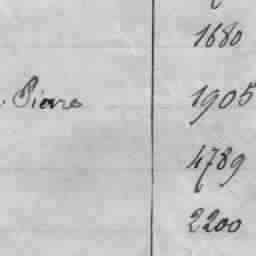 1680
Pierre 1905
4789
2200